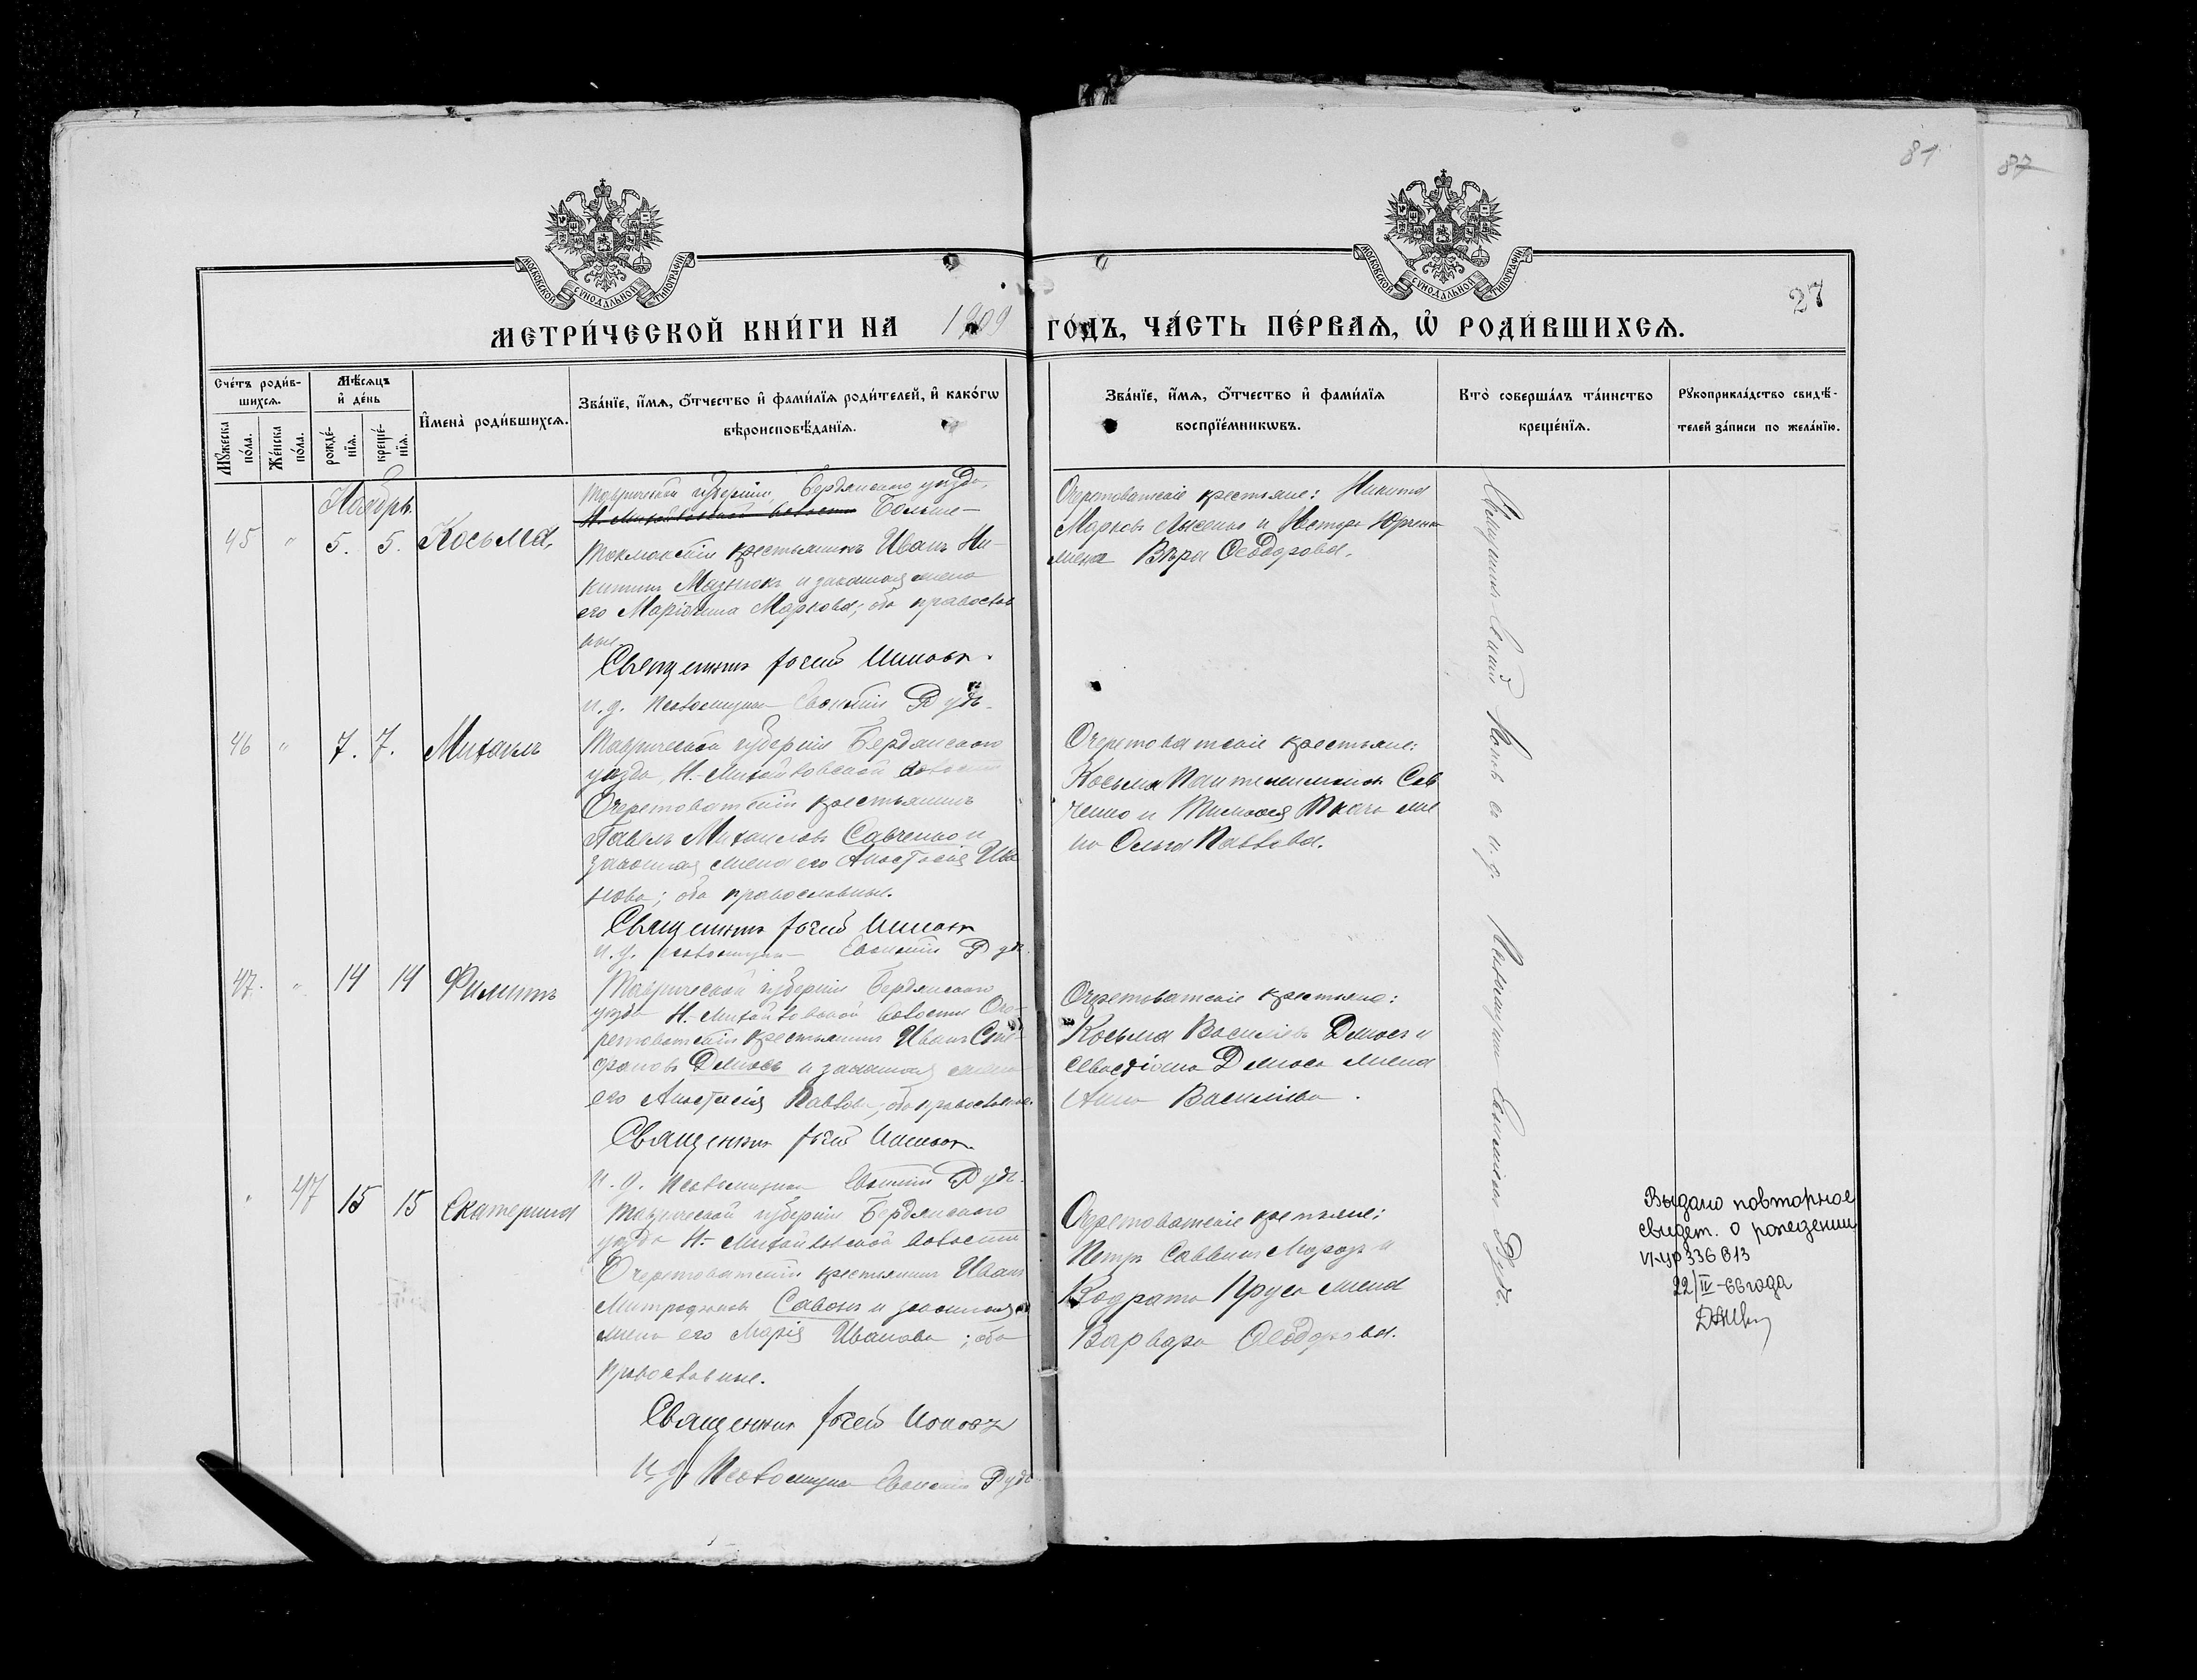 81
87
27
МОСКОВСКОЙ СѴНОДАЛЬНОЙ ТИПОГРАФІИ
МОСКОВСКОЙ СѴНОДАЛЬНОЙ ТИПОГРАФІИ
МЕТРИ́ЧЕСКОЙ КНИ́ГИ НА 1909 ГО́ДЪ, ЧА́СТЬ ПЕ́РВАѦ, Ѡ РОДИ́ВШИХСѦ.
Сче́тъ роди́в-
шихсѧ.
Мꙋ́жеска по́ла.
Же́нска по́ла.
Мѣ́сѧцъ
и де́нь
рожде́-
нїѧ.
креще́-
нїѧ.
Имена̀ роди́вшихсѧ.
Зва́нїе, и́мѧ, ѻ́тчество и фами́лїѧ роди́телей, и како́гѡ
вѣроисповѣ́данїѧ.
Зва́нїе, и́мѧ, ѻ́тчество и фами́лїѧ
воспрїе́мникѡвъ.
Кто̀ соверша́лъ та́инство
креще́нїѧ.
Рꙋкоприкла́дство свидѣ́-
телей за́писи по жела́нїю.
Ноябрь
45 " 5. 5. Косьма,
Таврической губерніи, Бердянскаго уѣзда,
Н. Михайловской волости Больше-
Токмакскій крестьянинъ Иванъ Ни-
китинъ Мазнюкъ и законная жена
его Маріанна Маркова; оба православ
ные
Священникъ Іоаннъ
и. д. псаломщика Евфимій Рудь.
Очеретоватскіе крестьяне: Никита
Марковъ Лысенко и Нестора Юрченко
жена Вѣра Ѳеодорова.
46 " 7. 7. Михаилъ
Таврической губерніи Бердянскаго
уѣзда, Н.-Михайловской волости
Очеретоватскій крестьянинъ
Павелъ Михаиловъ Савченко и
законная жена его Анастасія Ива
нова; оба православные.
Священникъ
и. д. псаломщика Евфимій Рудь.
Очеретоватскіе крестьяне:
Косьма Пантелеимоновъ Сав
ченко и Тимоѳея Ткача же
на Ольга Павлова.
47. " 14 14 Филиппъ
Таврической губерніи Бердянскаго
уѣзда Н.-Михайловской волости Оче-
ретоватскій крестьянинъ Иванъ Сте-
фановъ Демосъ и законная жена
его Анастасія Павлова; оба православные.
Священникъ
и. д. псаломщика Евфимій Рудь.
Очеретоватскіе крестьяне:
Косьма Василіевъ Демосъ и
Севастіана Демоса жена
Анна Василіева.
" 47 15 15 Екатерина
Таврической губерніи Бердянскаго
уѣзда Н.-Михайловской волости
Очеретоватскій крестьянинъ Иванъ
Митрофановъ Савонъ и законная
жена его Марія Иванова; оба
православные.
Священникъ
и. д. Псаломщика Евфимій Рудь
Очеретоватскіе крестьяне:
Петръ Саввинъ Морозъ и
Кодрата Пруса жена
Варвара Ѳеодорова.
Священникъ и. д. Псаломщика Евфимій Рудь.
Выдано повторное
свидет. о рождении
336813
22/IV-66 года